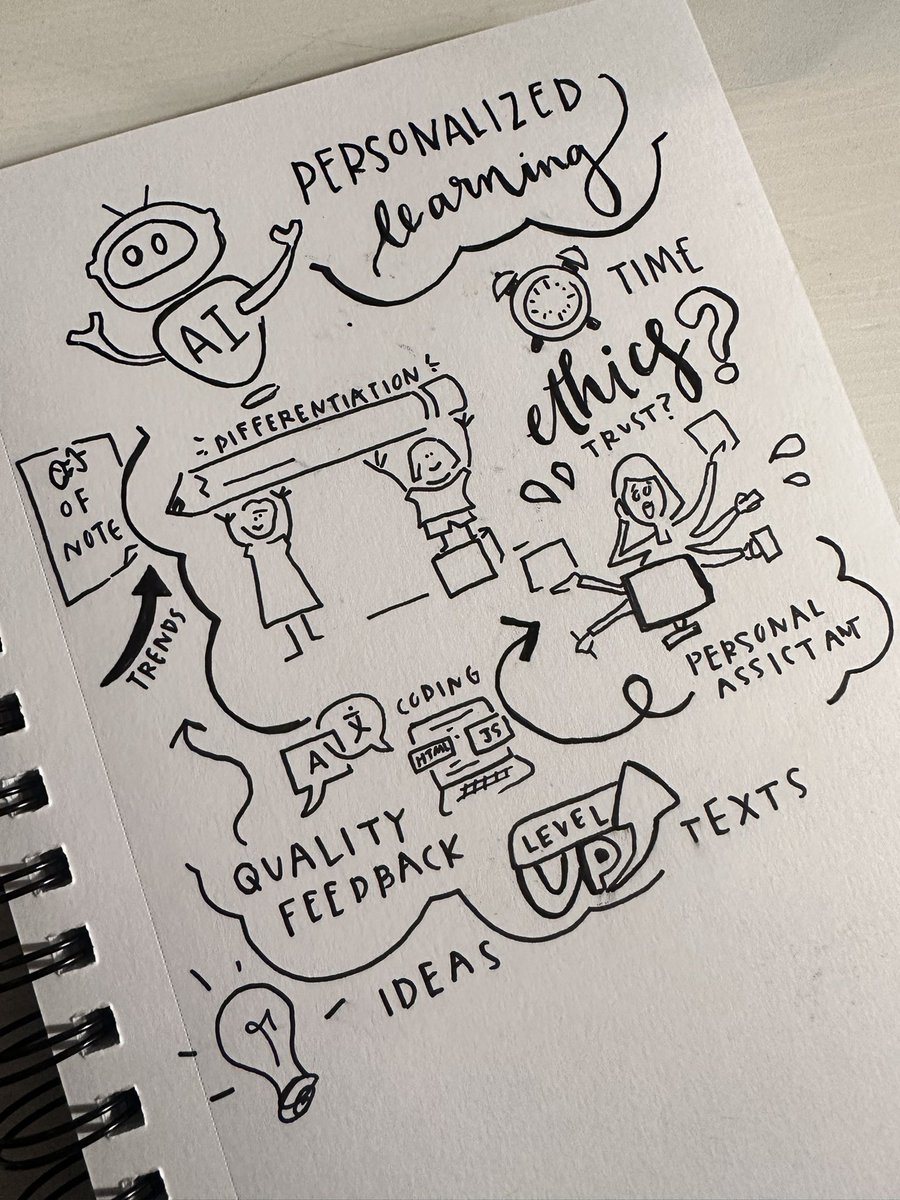 PERSONALIZED
learning
AI
TIME
ethics?
TRUST?
DIFFERENTIATION
OF
NOTE
TRENDS
PERSONAL
ASSICTANT
A
CODING
HTML
JS
QUALITY
FEEDBACK
LEVEL
UP
TEXTS
IDEAS